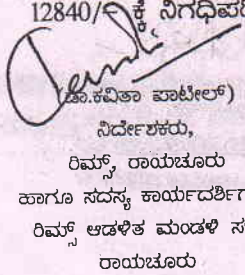 12840/- ಕ್ಕೆ ನಿಗಧಿಪ
(ಡಾ.ಕವಿತಾ ಪಾಟೀಲ್)
ನಿರ್ದೇಶಕರು,
ರಿಮ್ಸ್, ರಾಯಚೂರು
ಹಾಗೂ ಸದಸ್ಯ ಕಾರ್ಯದರ್ಶಿಗ
ರಿಮ್ಸ್ ಆಡಳಿತ ಮಂಡಳಿ ಸ
ರಾಯಚೂರು